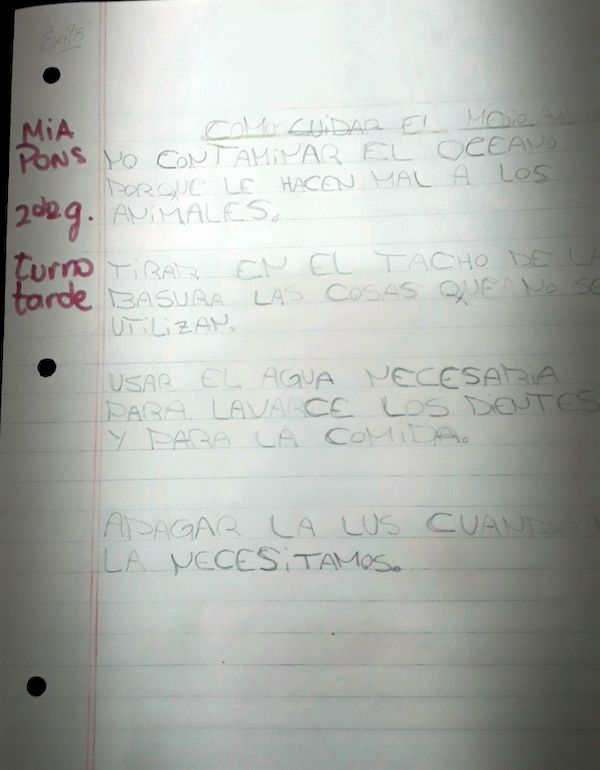 Éxito
MiA
PONS
2do g.
turno
tarde
COMO CUIDAR EL MEDIO
NO CONTAMINAR EL OCEANO
PORQUE LE HACEN MAL A LOS
ANiMALES.
TiRAR EN EL TACHO DE LA
BASURA LAS COSAS QUE NO SE
UTiLiZAN.
USAR EL AGUA NECESARIA
PARA LAVARCE LOS DIENTES
Y PARA LA COMIDA.
APAGAR LA LUS CUANDO
LA NECESiTAMOS.